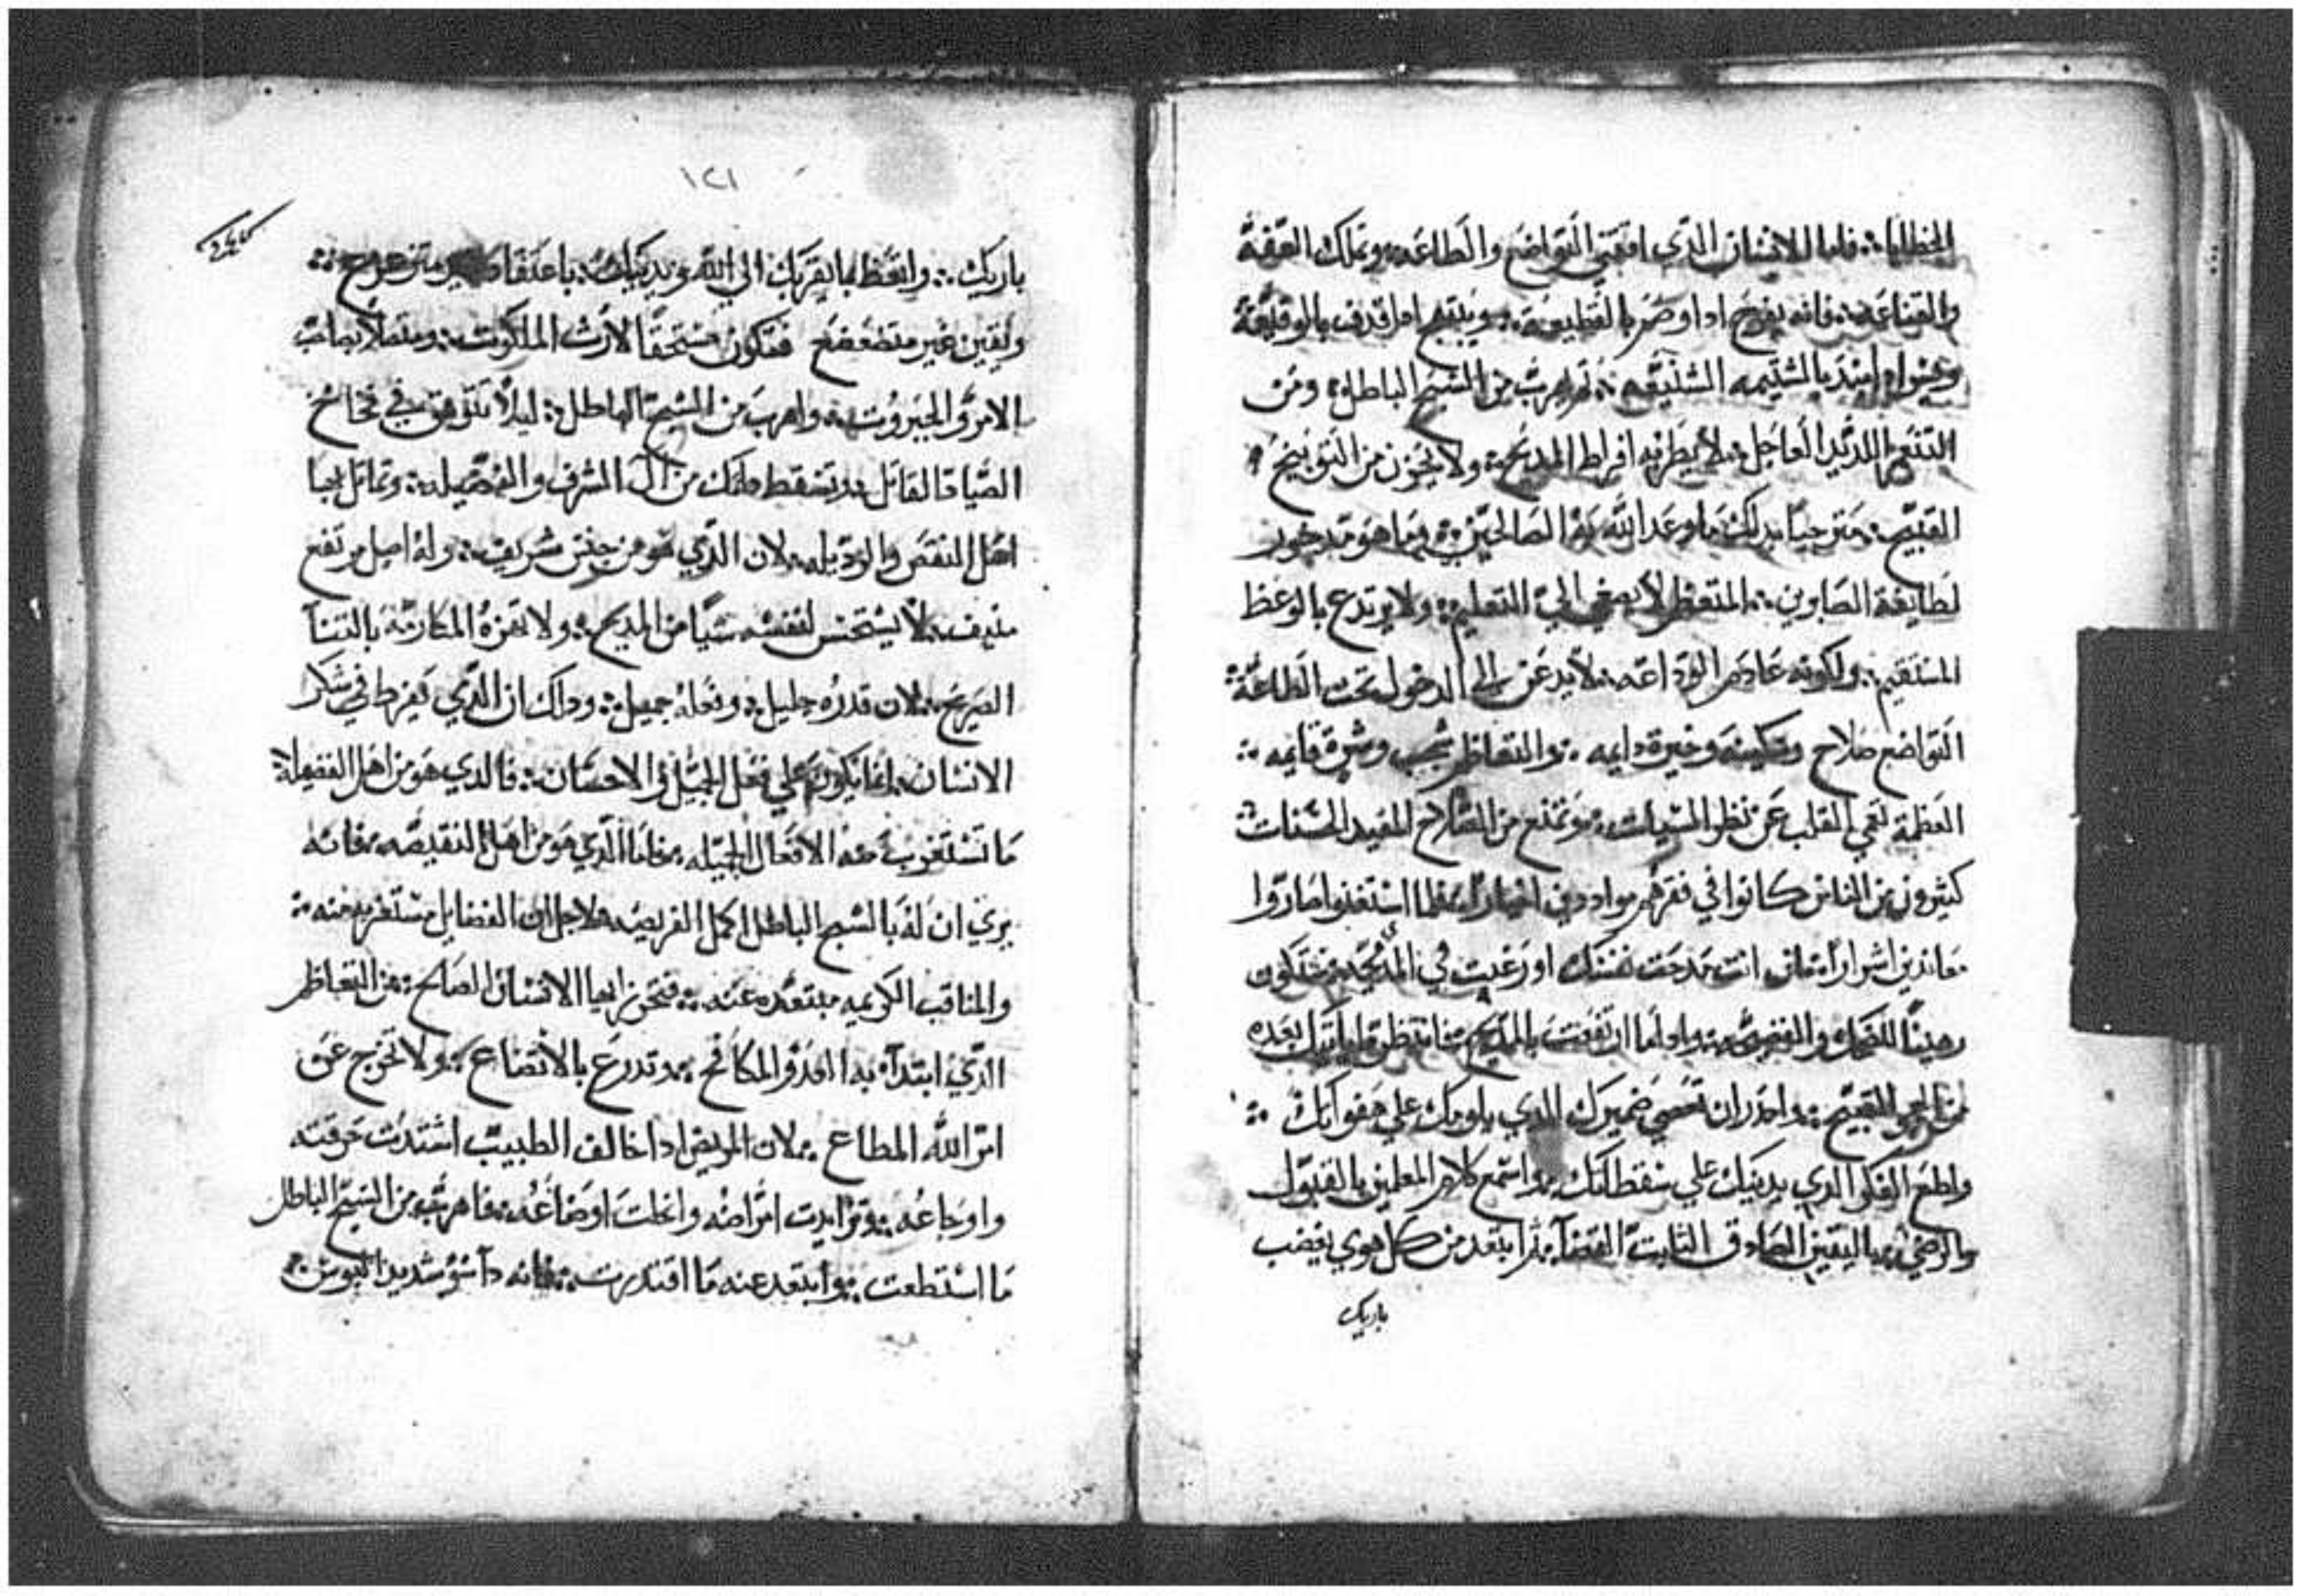 الخطايا ؞ فاما الانسان الذي اقتني التواضع والطاعه ؞ وتملك العفة
والقناعة ؞ فانه يفرح اذا وصم بالقطيعة ؞ ويبتهج اما قدف بالوقيعة
بالشتيمه الشنيعه ؞ ثم يهرب من السبح الباطل ؞ ومن
التنعم اللديد العاجل ؞ لا يطربه افراط المديح ؞ ولا يحزن من التوبيخ
القبيح ؞ مترجيا بدلك ما وعد الله به الصالحين ؞ وما هو مدخور
لطايفة الصابرين ؞ المتعظم لا يصغي الي التعليم ؞ ولا يرتدع بالوعظ
المستقيم ؞ ولكونه عادم الوداعه ؞ لا يدعن الي الدخول تحت الطاعة ؞
التواضع صلاح وسكينه وخيرة دايمه ؞ والتعاظم عجب وشرة قايمه ؞
العظمة تعمي القلب عن نظر السيات ؞ وتمنع من الصلاح المفيد الحسنات ؞
كثيرون من الناس كانوا في فقرهم موادين اخيارا ؞ فلما استغنوا صاروا
معاندين اشرارا ؞ فان انت مدحت نفسك او رغبت في المدحة ؞ فتكون
رهينا والفضيحه ؞ واما ان تفعت بالمديح ؞ فانتظر ما ياتيك بعده
من الهجو القبيح ؞ واحدر ان تعصي ضميرك الدي يلومك علي هفواتك ؞
واطع الفكر الدي يدينك علي سقطاتك ؞ واسمع كلام المعلمين بالقبول
والرضي ؞ باليقين الصادق الثابت القضا ؞ ثم ابتعد من كل هوي يغضب
باريك
١٢١
باريك ؞ واتعظ بما يقربك الي الله ويدنيك ؞ باعتقاد غير متزعزع ؞
ويقين غير متضعضع فتكون مستحقا لارث الملكوت ؞ ومتصلا بصاحب
الامر والجبروت ؞ واهرب من السبح الباطل ؞ ليلا تتوهق في فخاخ
الصياد القاتل ؞ وتسقط من الشرف والفضيله ؞ وتماتل بها
اهل النقص والرديله ؞ لان الذي هو من جنس شريف ؞ وله اصل مرتفع
منيف ؞ لا يستحسن لنفسه شيا من المديح ؞ ولا تهزه المكارمة بالثنا
الصريح ؞ لان قدره جليل ؞ وفعله جميل ؞ ودلك ان الذي يفرط في شكر
الانسان ؞ انما يكون علي فعل الجميل والاحسان ؞ فالدي هو من اهل الفضيلة ؞
ما تستغرب منه الافعال الجميله ؞ فاما الذي هو من اهل النقيصه ؞ فانه
يري ان له بالسبح الباطل اكمل الفريصه ؞ لاجل ان الفضايل مستغربه منه ؞
والمناقب الكريمه مبتعده عنه ؞ فتحرز ايها الانسان الصالح ؞ من التعاظم
الذي ابتدا به العدو المكافح ؞ وتدرع بالاتضاع ؞ ولا تخرج عن
امر الله المطاع ؞ لان المريض ادا خالف الطبيب اشتدت حرقته
واوجاعه ؞ وتزايدت امراضه وانحلت اوضاعه ؞ فاهرب من السبح الباطل
ما استطعت ؞ وابتعد عنه ما اقتدرت ؞ فانه دا سو شديد البوس ؞